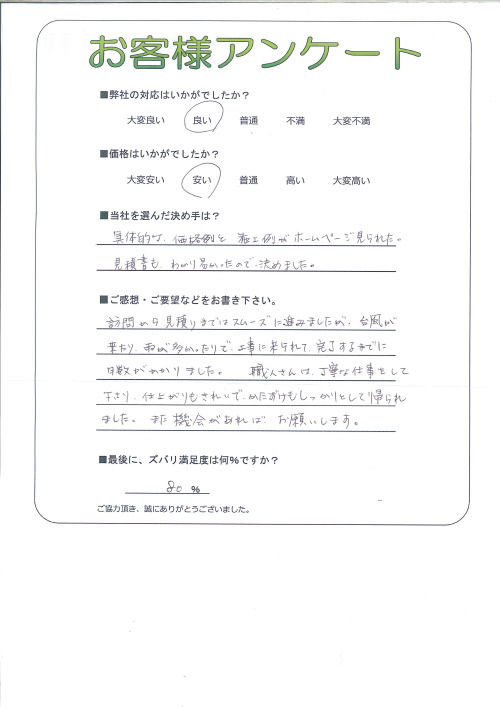 お客様アンケート
■弊社の対応はいかがでしたか？
大変良い 良い 普通 不満 大変不満
■価格はいかがでしたか？
大変安い 安い 普通 高い 大変高い
■当社を選んだ決め手は？
具体的な、価格例と施工例がホームページ見られた。
見積書も、わかり易かったので、決めました。
■ご感想・ご要望などをお書き下さい。
訪問から見積りまではスムーズに進みましたが、台風が
来たり、雨が多かったりで、工事に来られて、完了するまでに
日数がかかりました。 職人さんは、丁寧な仕事をして
下さり、仕上がりもきれいで、かたずけもしっかりとして帰られ
ました。また機会があれば、お願いします。
■最後に、ズバリ満足度は何%ですか？
80 %
ご協力頂き、誠にありがとうございました。